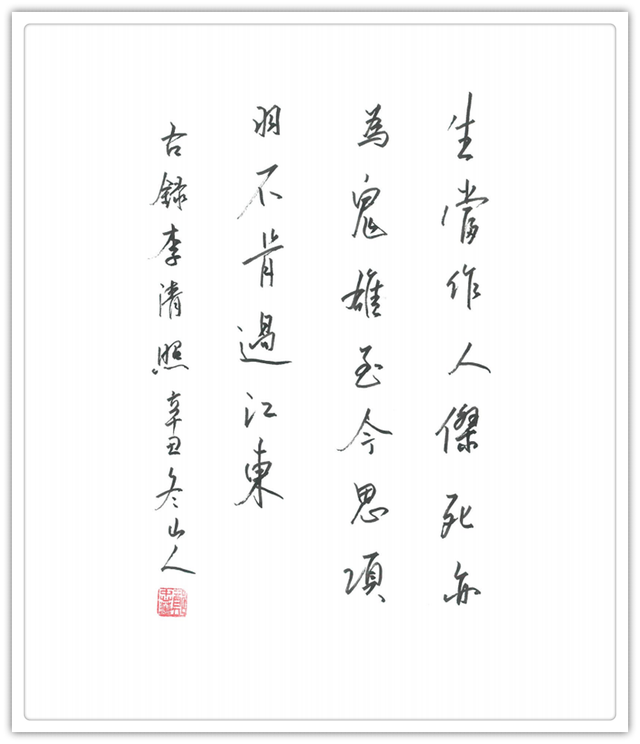 生當作人傑死亦
為鬼雄至今思項
羽不肯過江東
右錄李清照辛丑冬山人